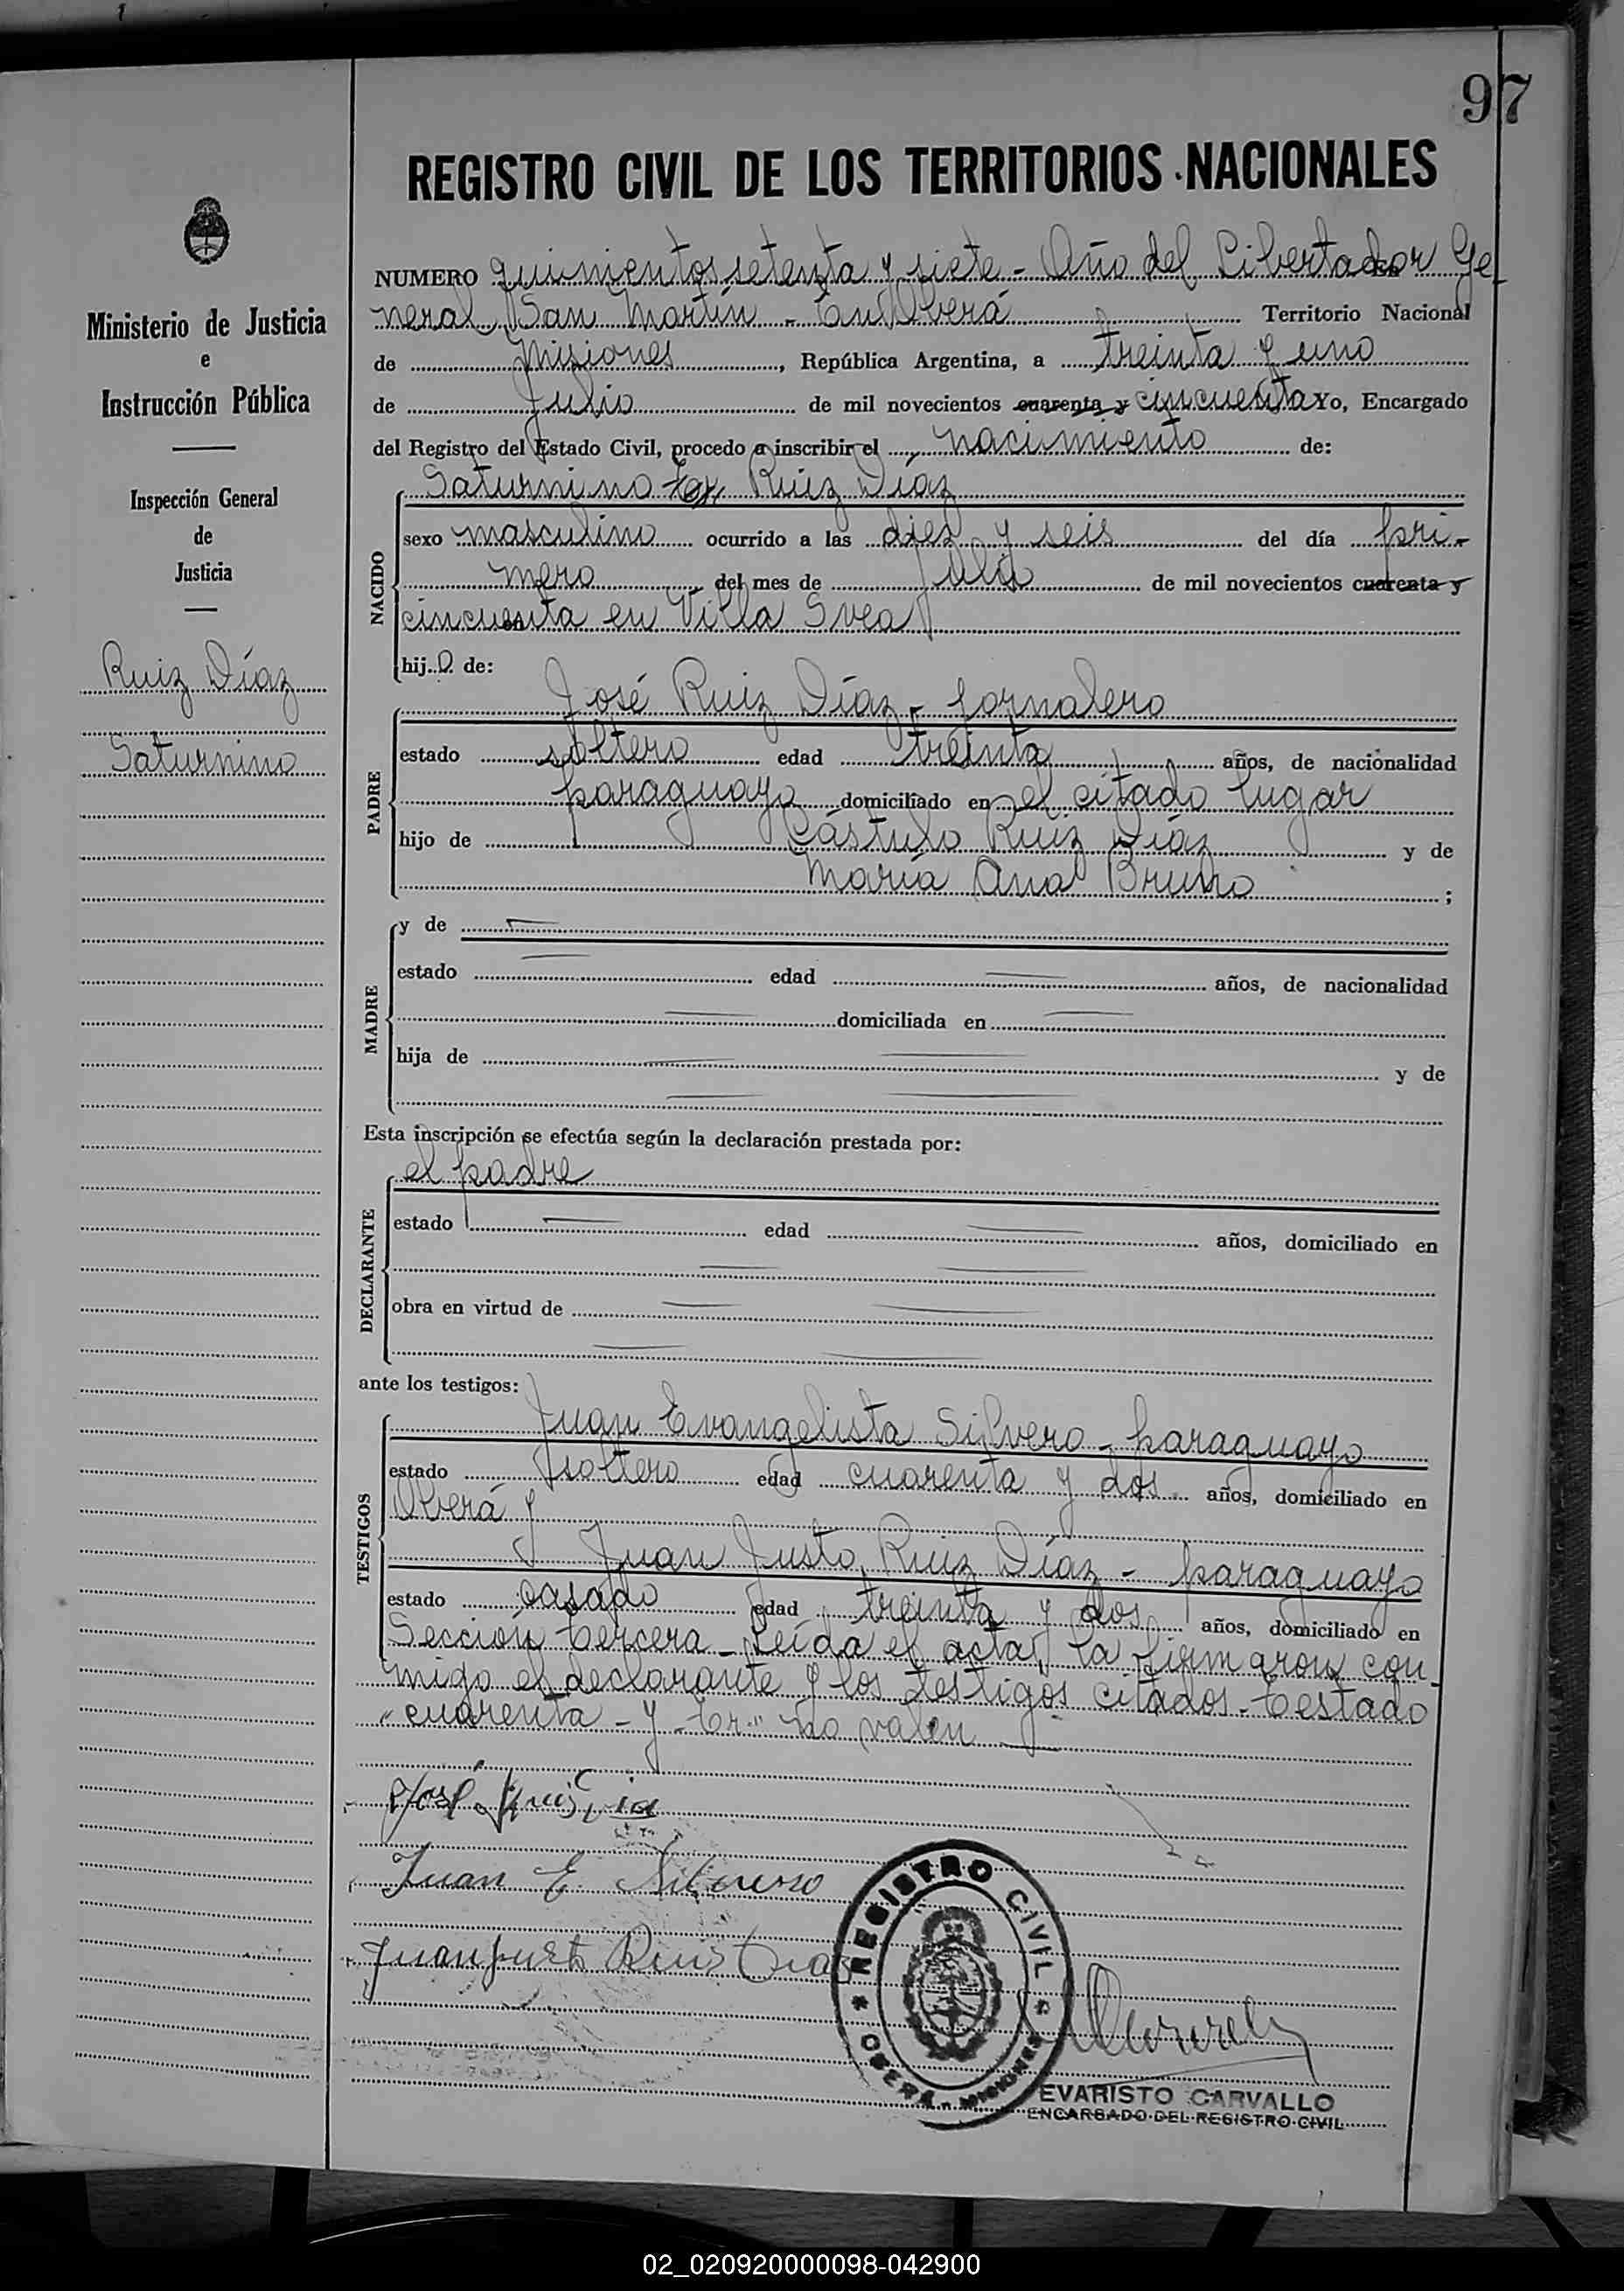 97
REGISTRO CIVIL DE LOS TERRITORIOS NACIONALES
Ministerio de Justicia
e
Instrucción Pública
Inspección General
de
Justicia
Ruiz Díaz
Saturnino
NUMERO quinientos setenta y siete - Año del Libertador Ge
neral San Martín - En Oberá Territorio Nacional
de Misiones, República Argentina, a treinta y uno
de Julio de mil novecientos cuarenta y cincuenta Yo, Encargado
del Registro del Estado Civil, procedo a inscribir el nacimiento de:
NACIDO
Saturnino Er Ruiz Díaz
sexo masculino ocurrido a las diez y seis del día pri-
mero del mes de julio de mil novecientos cuarenta y
cincuenta en Villa Svea
hijo de:
PADRE
José Ruiz Díaz - jornalero
estado soltero edad treinta años, de nacionalidad
paraguayo domiciliado en el citado lugar
hijo de Cástulo Ruiz Díaz y de
María Ana Bruno ;
MADRE
y de
estado edad años, de nacionalidad
domiciliada en
hija de y de
Esta inscripción se efectúa según la declaración prestada por:
DECLARANTE
el padre
estado edad años, domiciliado en
obra en virtud de
ante los testigos:
TESTIGOS
Juan Evangelista Silvero - paraguayo
estado soltero edad cuarenta y dos años, domiciliado en
Oberá y
Juan Justo Ruiz Díaz - paraguayo
estado casado edad treinta y dos años, domiciliado en
Sección tercera - Leída el acta, la firmaron con
migo el declarante y los testigos citados - Testado
"cuarenta - y - Er" no valen
José Ruis Dia
Juan E. Silvero
Juan Justo Ruis Dias
REGISTRO CIVIL
OBERÁ - MISIONES
EVARISTO CARVALLO
ENCARGADO DEL REGISTRO CIVIL
02_020920000098-042900